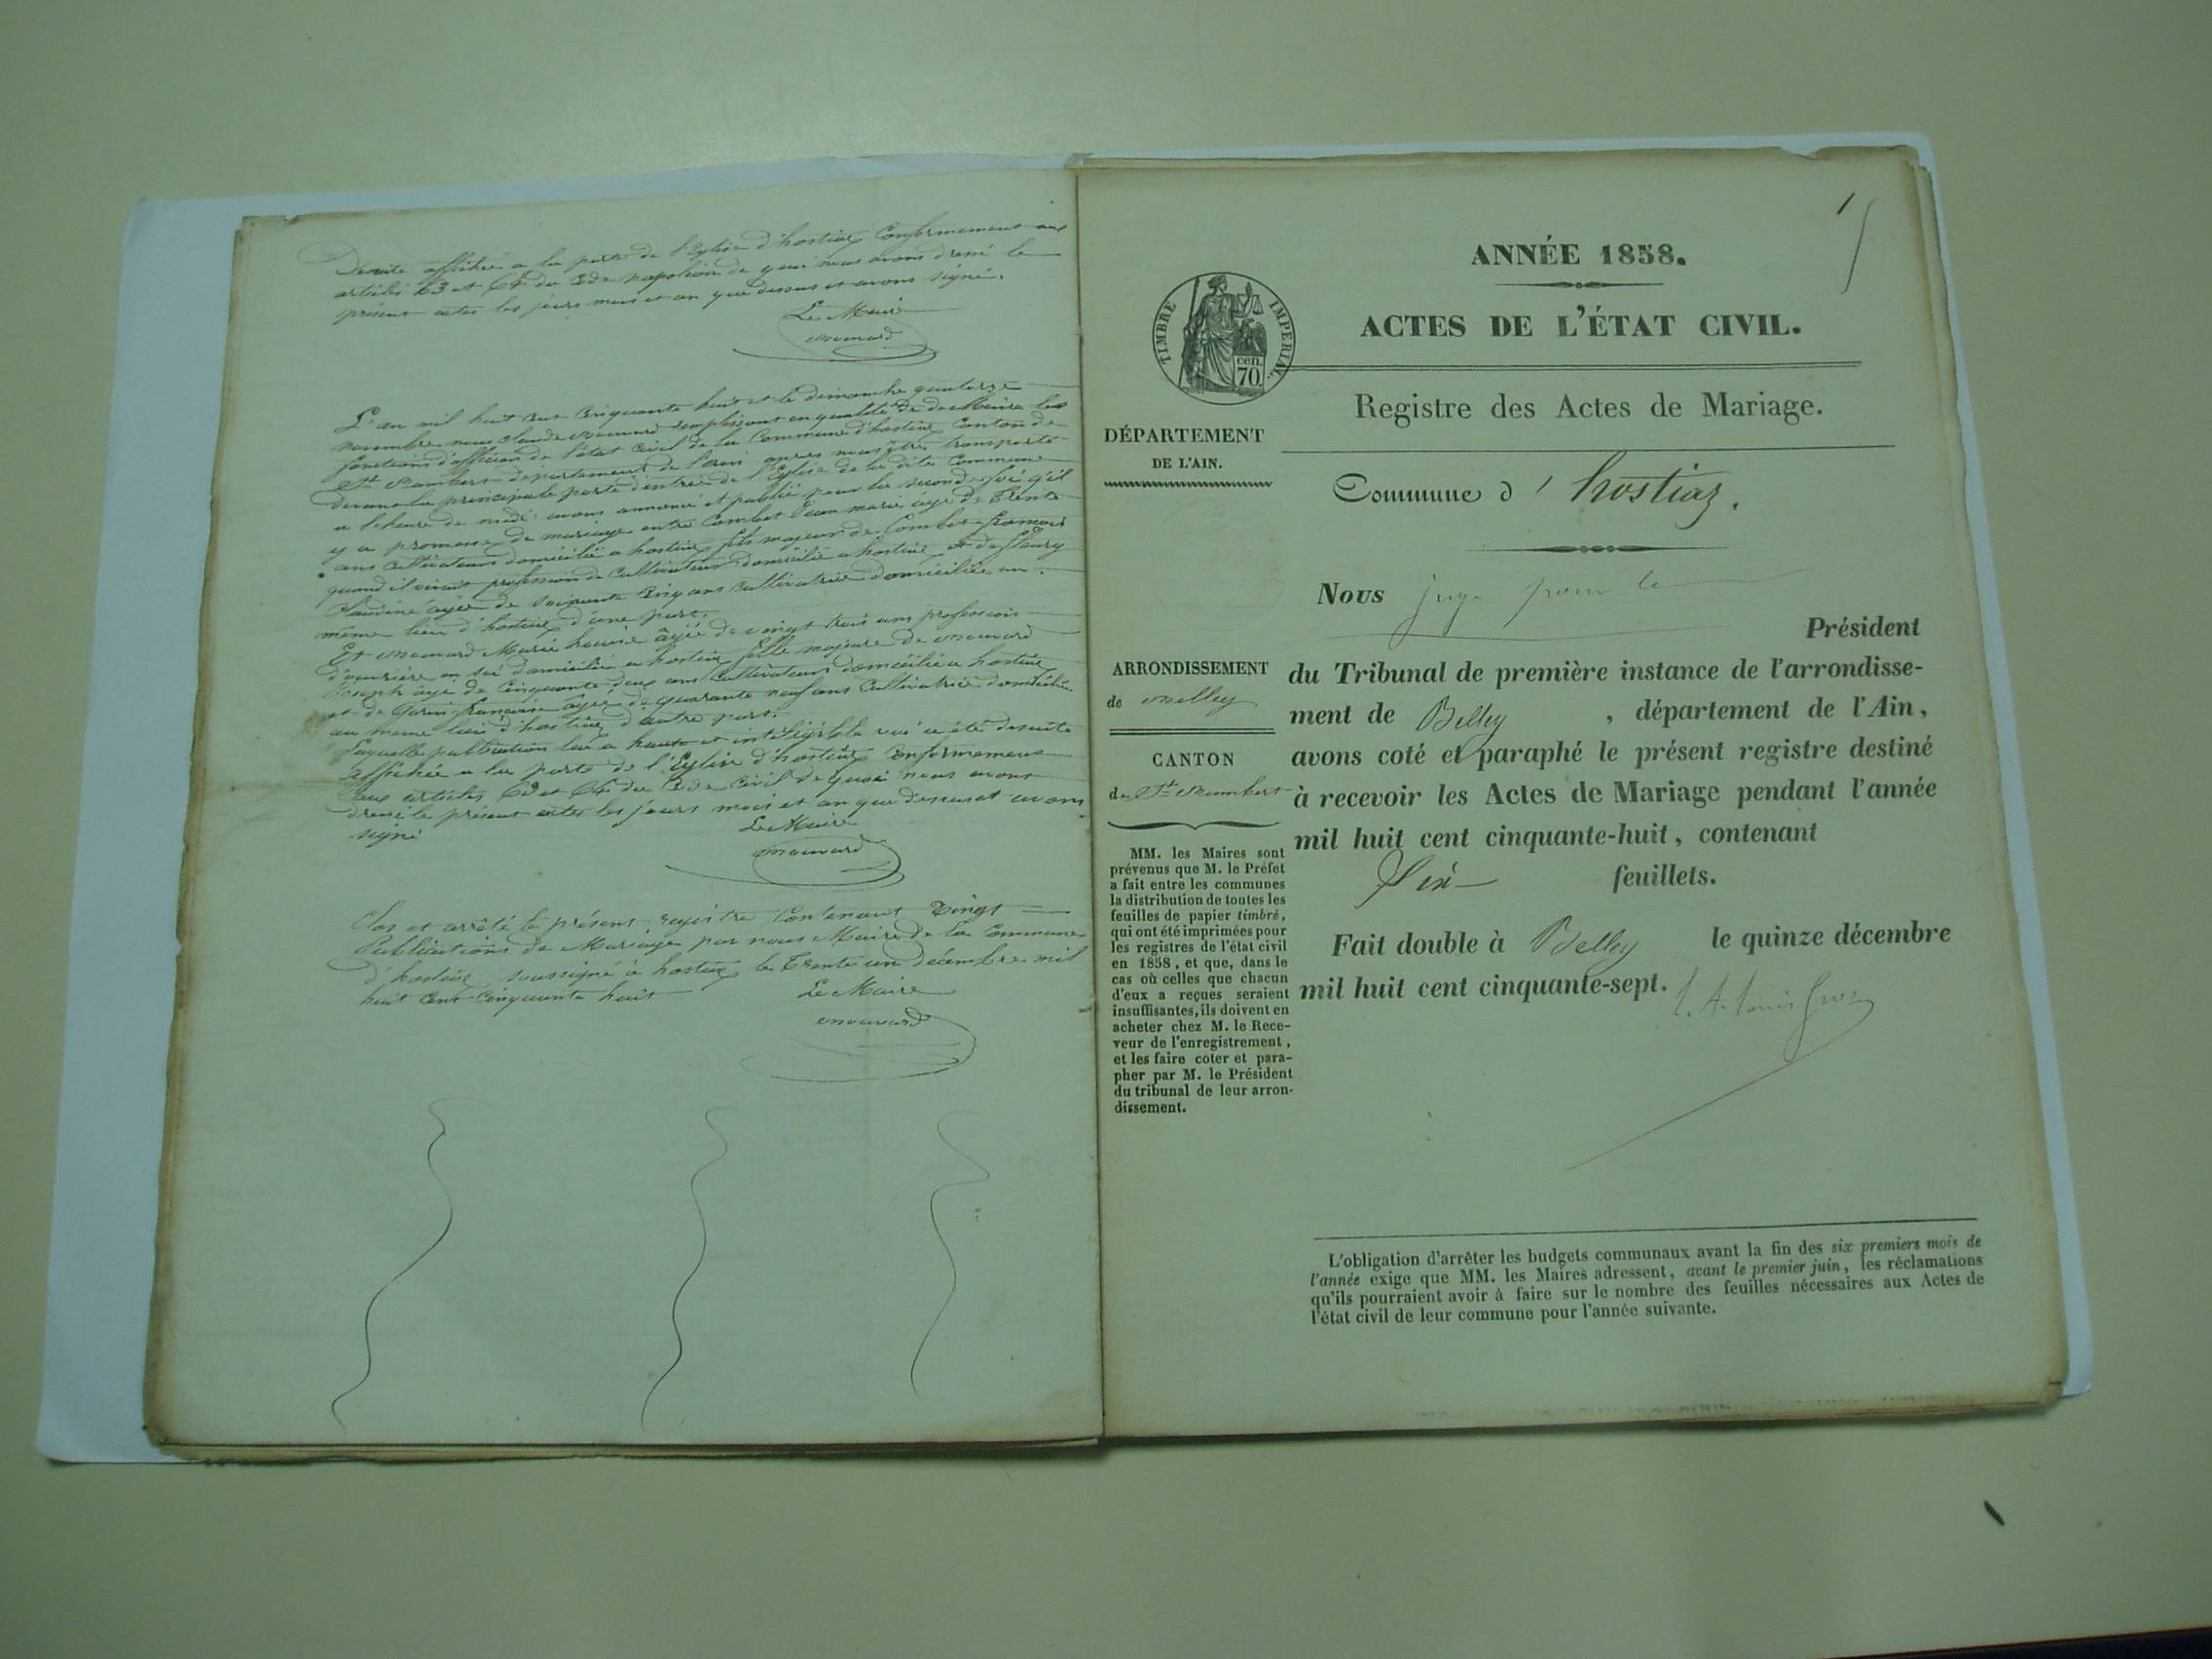 De suite affichée a la porte de l'Eglise d'hostiaz Conformement aux
articles 63 et 64 du Code napoleon de quoi nous avons dressé le
présent actes les jours mois et an que dessus et avons signé.
Le Maire
L'an mil huit cent cinquante huit et le dimanche quatorze
novembre nous Claude remplissant en qualité de Maire les
fonctions d'officier de l'état civil de la Commune d'hostiaz Canton de
St Rambert département de l'ain après nous être transporté
devant la principale porte d'entrée de l'Eglise de la dite Commune
a l'heure de midi avons annoncé et publié pour la seconde foi qu'il
y a promesse de mariage entre Combet Jean marie agé de Trente
ans cultivateur domicilié a hostiaz fils majeur de Combet francois
quand il vivait profession de cultivateur domicilié a hostiaz et de fleury
Claudine agée de soixante cinq ans cultivatrice domiciliée au
même lieu d'hostiaz d'une part.
Et Marie agée de vingt trois ans profession
d'ouvrière en soi domiciliée a hostiaz fille majeure de
Joseph agé de cinquante deux ans cultivateur domicilié a hostiaz
et de francoise agée de quarante neuf ans cultivatrice domiciliée
au meme lieu d'hostiaz d'autre part.
Laquelle publication lue a haute et intelligible voi a été de suite
affichée a la porte de l'Eglise d'hostiaz conformement
aux articles 63 et 64 du Code civil de quoi nous avons
dressé le présent actes les jours mois et an que dessus et avons
signé
Le Maire
Clos et arrêté le présent registre contenant Vingt
Publications de Mariage par nous Maire de la Commune
d'hostiaz soussigné à hostiaz le Trente un décembre mil
huit cent cinquante huit
Le Maire
1
ANNÉE 1858.
ACTES DE L'ÉTAT CIVIL.
TIMBRE IMPERIAL
cen.
70
Registre des Actes de Mariage.
DÉPARTEMENT
DE L'AIN.
Commune d'hostiaz.
Nous juge pour le
Président
du Tribunal de première instance de l'arrondisse-
ment de Belley, département de l'Ain,
avons coté et paraphé le présent registre destiné
à recevoir les Actes de Mariage pendant l'année
mil huit cent cinquante-huit, contenant
Six feuillets.
Fait double à Belley le quinze décembre
mil huit cent cinquante-sept.
ARRONDISSEMENT
de
CANTON
de St Rambert
MM. les Maires sont
prévenus que M. le Préfet
a fait entre les communes
la distribution de toutes les
feuilles de papier timbré,
qui ont été imprimées pour
les registres de l'état civil
en 1858, et que, dans le
cas où celles que chacun
d'eux a reçues seraient
insuffisantes, ils doivent en
acheter chez M. le Rece-
veur de l'enregistrement,
et les faire coter et para-
pher par M. le Président
du tribunal de leur arron-
dissement.
L'obligation d'arrêter les budgets communaux avant la fin des six premiers mois de
l'année exige que MM. les Maires adressent, avant le premier juin, les réclamations
qu'ils pourraient avoir à faire sur le nombre des feuilles nécessaires aux Actes de
l'état civil de leur commune pour l'année suivante.